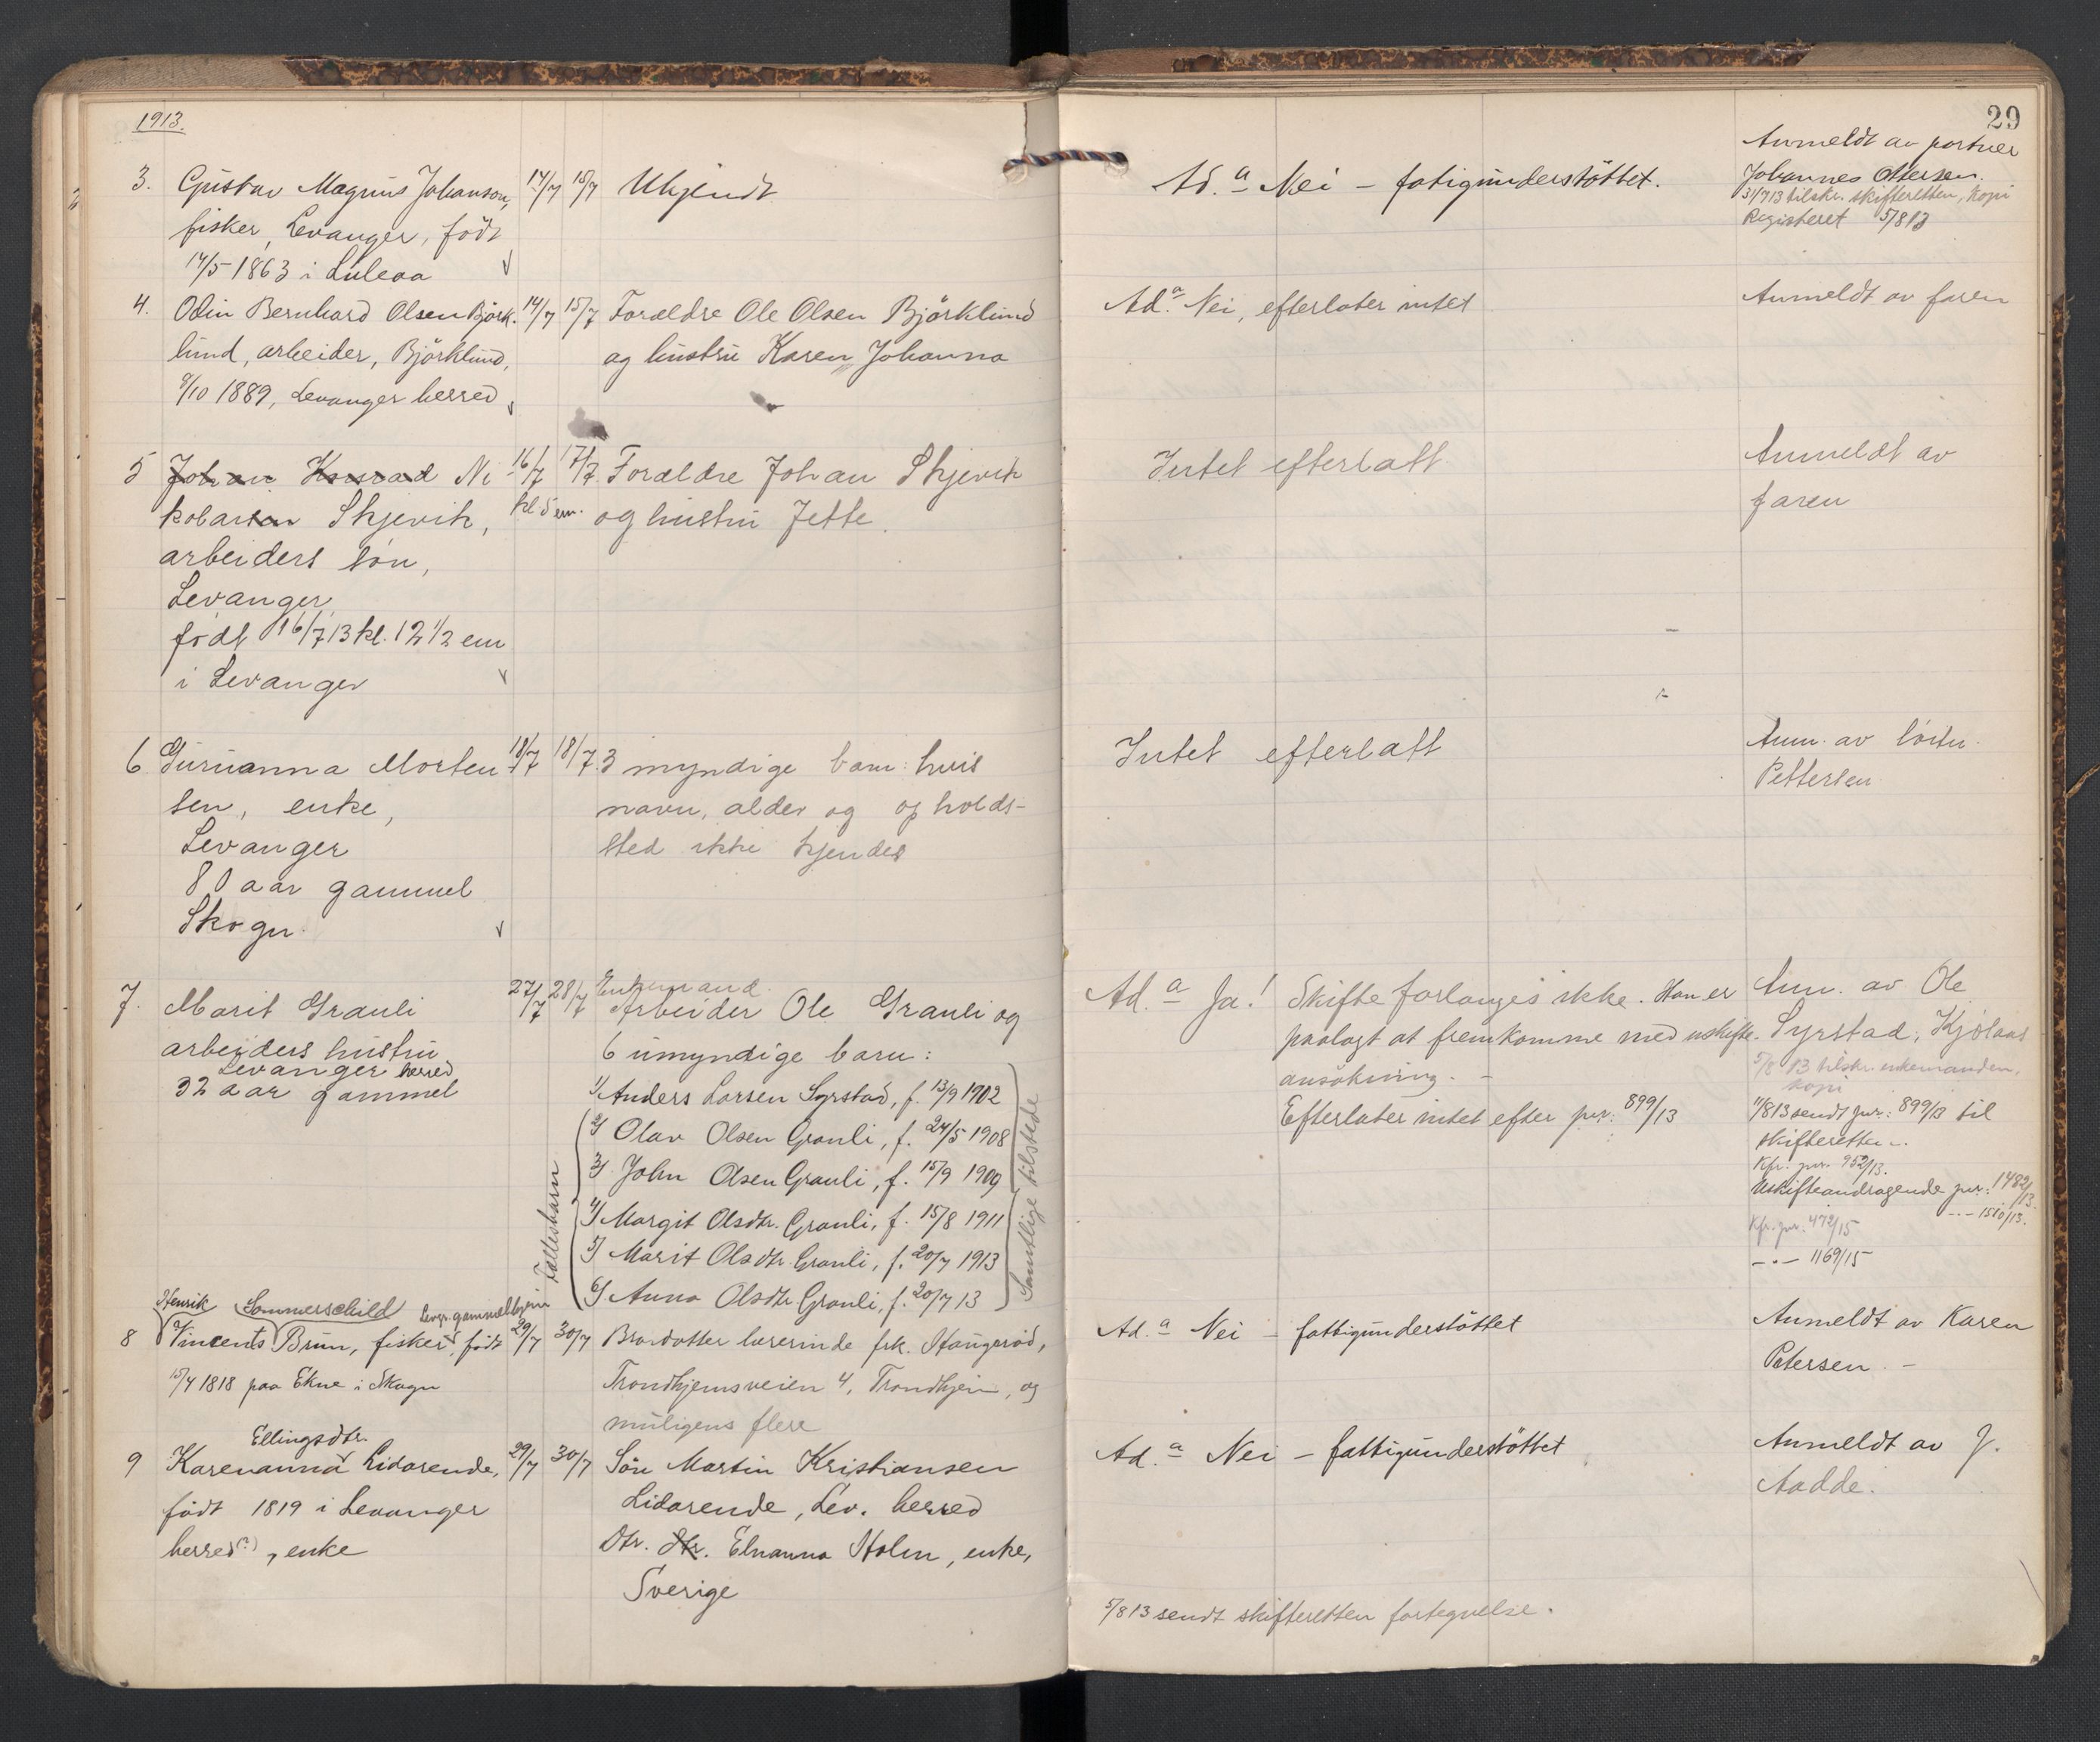 1913.
3. Gustav Magnus Johanson, 14/7 15/7 Ukjendt
fisker, Levanger, født
14/5 1863 i Luleaa
4. Odin Bernhard Olsen Björk- 14/7 15/7 Forældre Ole Olsen Björklund
lund, arbeider, Björklund, og hustru Karen Johanna
8/10 1889, Levanger herred
5 Johan Konrad Ni 16/7 17/7 Forældre Johan Skjevik
kolaisen Skjevik, kl 5 em. og hustru Jette.
arbeiders søn,
Levanger,
født 16/7 13 kl. 12 1/2 em
i Levanger
6 Gurianna Morten 18/7 18/7 3 myndige barn: hvis
sen, enke, navn, alder og opholds-
Levanger sted ikke kjendes
80 aar gammel
Skogn
7. Marit Grauli 27/7 28/7 Enkemand.
Arbeider Ole Grauli og
arbeiders hustru 6 umyndige barn:
Levanger herred
32 aar gammel
1) Anders Larsen Syrstad, f. 13/9 1902
2) Olav Olsen Grauli, f. 24/5 1908
3) John Olsen Grauli, f. 15/9 1909
4) Margit Olsdtr. Grauli, f. 15/8 1911
5) Marit Olsdtr. Grauli, f. 20/7 1913
6) Anna Olsdtr. Grauli, f. 20/7 13
Fællesbarn
Samtlige tilstede
Henrik Sommerschild Levgr. gammelhjem
8 Vincents Brun, fisker, født 29/7 30/7 Brordatter lærerinde frk. Haugerød,
15/4 1818 paa Ekne i Skogn Trondhjemsveien 4, Trondhjem, og
muligens flere
Ellingsdtr.
9 Karenanna Lidarende, 29/7 30/7 Søn Martin Kristiansen
født 1819 i Levanger Lidarende, Lev. herred
herred(?), enke Dtr. dtr. Elnanna Holm, enke,
Sverige
29
Anmeldt av portner
Ad. a Nei – fatigunderstöttet. Johannes Ottersen.
31/7 13 tilskr. skifteretten, kopi
Registeret 5/8 13
Ad. a Nei, efterlater intet Anmeldt av faren
Intet efterlatt Anmeldt av
faren
Intet efterlatt Anm. av
Pettersen
Ad. a Ja! Skifte forlanges ikke. Han er Anm. av Ole
paalagt at fremkomme med uskifte- Syrstad, Kjølaas
ansøkning. – 5/8 13 tilskr. enkemanden,
kopi
Efterlater intet efter jnr. 899/13 11/8 13 sendt jnr.: 899/13 til
skifteretten.
Kfr. jnr. 952/13.
Uskifteandragende jnr.: 1482/13
- - - 1510/13.
Kfr. jnr. 472/15
- " - 1169/15
Ad. a Nei – fattigunderstöttet Anmeldt av Karen
Petersen. –
Ad. a Nei – fattigunderstöttet Anmeldt av J.
Aadde.
5/8 13 sendt skifteretten fortegnelse.